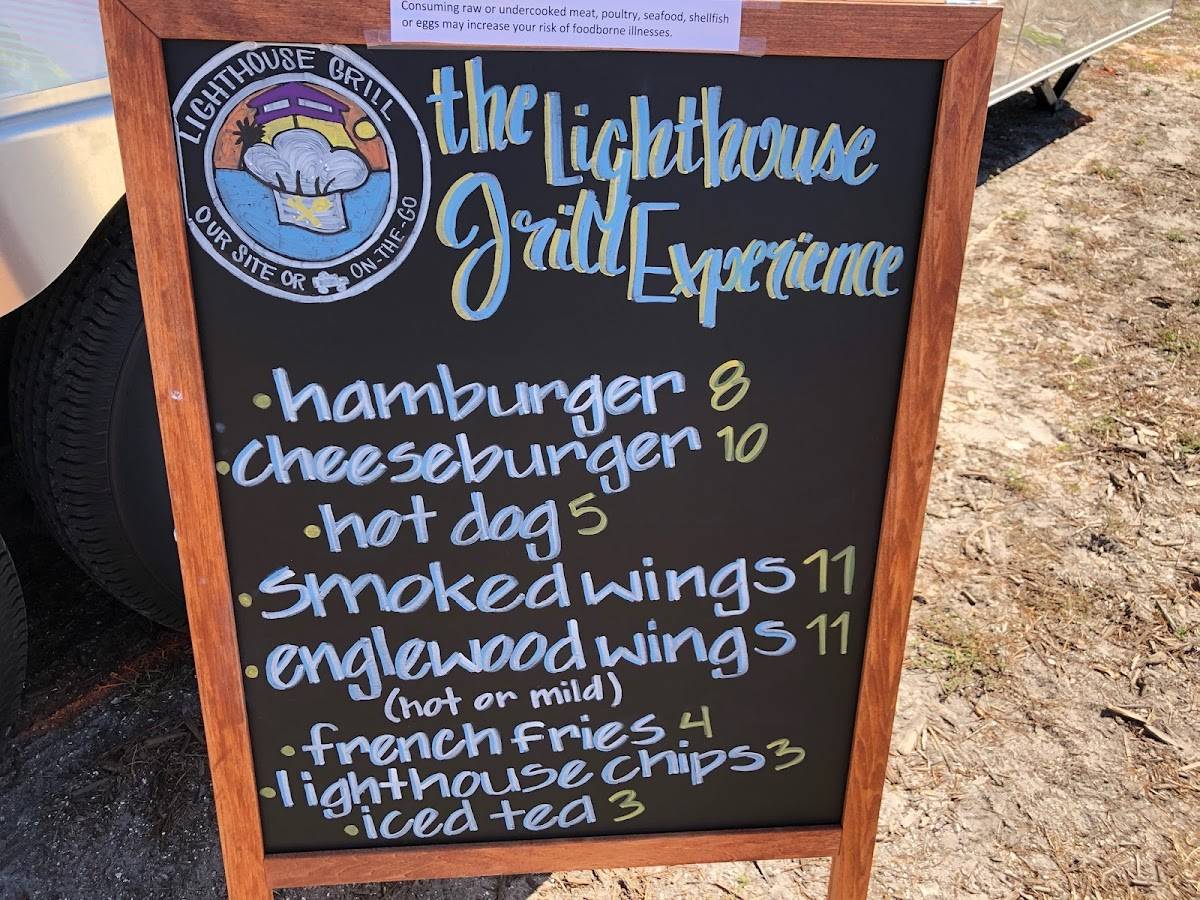 Consuming raw or undercooked meat, poultry, seafood, shellfish
or eggs may increase your risk of foodborne illnesses.
LIGHTHOUSE GRILL
OUR SITE OR ON-THE-GO
the Lighthouse
Grill Experience
• hamburger 8
• cheeseburger 10
• hot dog 5
• smoked wings 11
• englewood wings 11
(hot or mild)
• french fries 4
• lighthouse chips 3
• iced tea 3